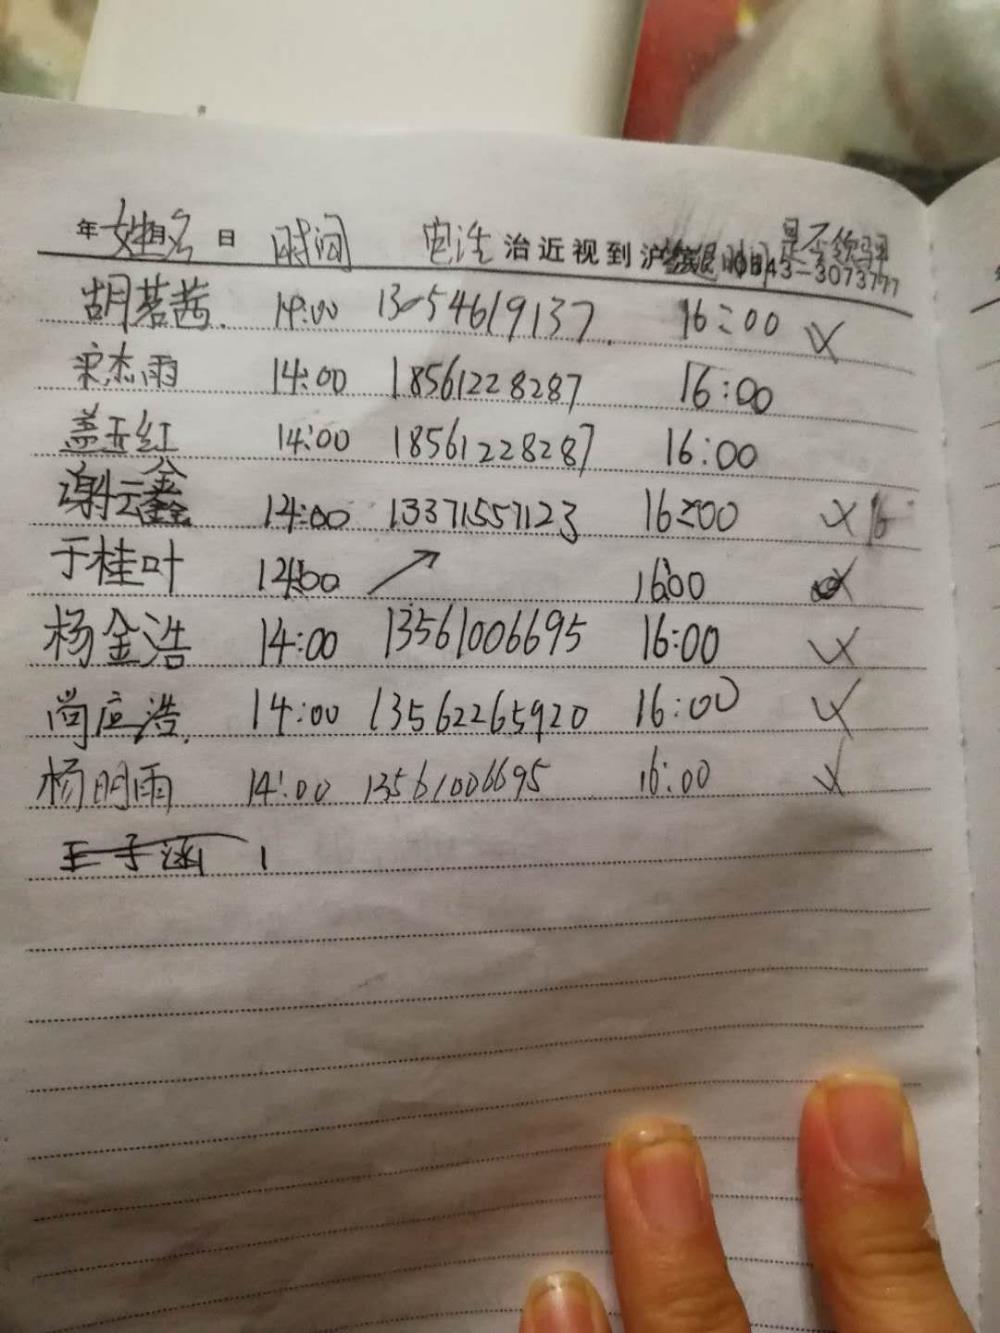 年 姓名 日 时间 电话 治近视到沪 时间 0543-3073777 是否领
胡茗茜. 14:00 13054619137. 16:00
宋杰雨 14:00 18561228287 16:00
盖玉红 14:00 18561228287 16:00
谢云鑫 14:00 13371557123 16:00 16
于桂叶 14:00 ↗ 16:00
杨金浩 14:00 13561006695 16:00
尚应浩. 14:00 13562265920 16:00
杨明雨 14:00 13561006695 16:00
王子涵 1